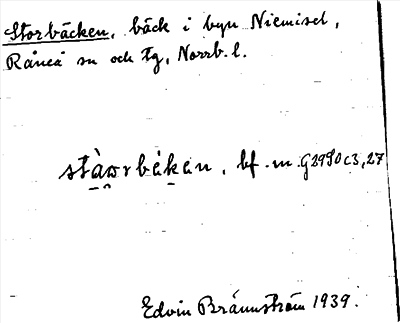 Storbäcken, bäck i byn Niemisel,
Råneå sn och tg, Norrb. l.
stàωrbèkεn, bf. m. G2950c3,27
Edvin Brännström 1939.